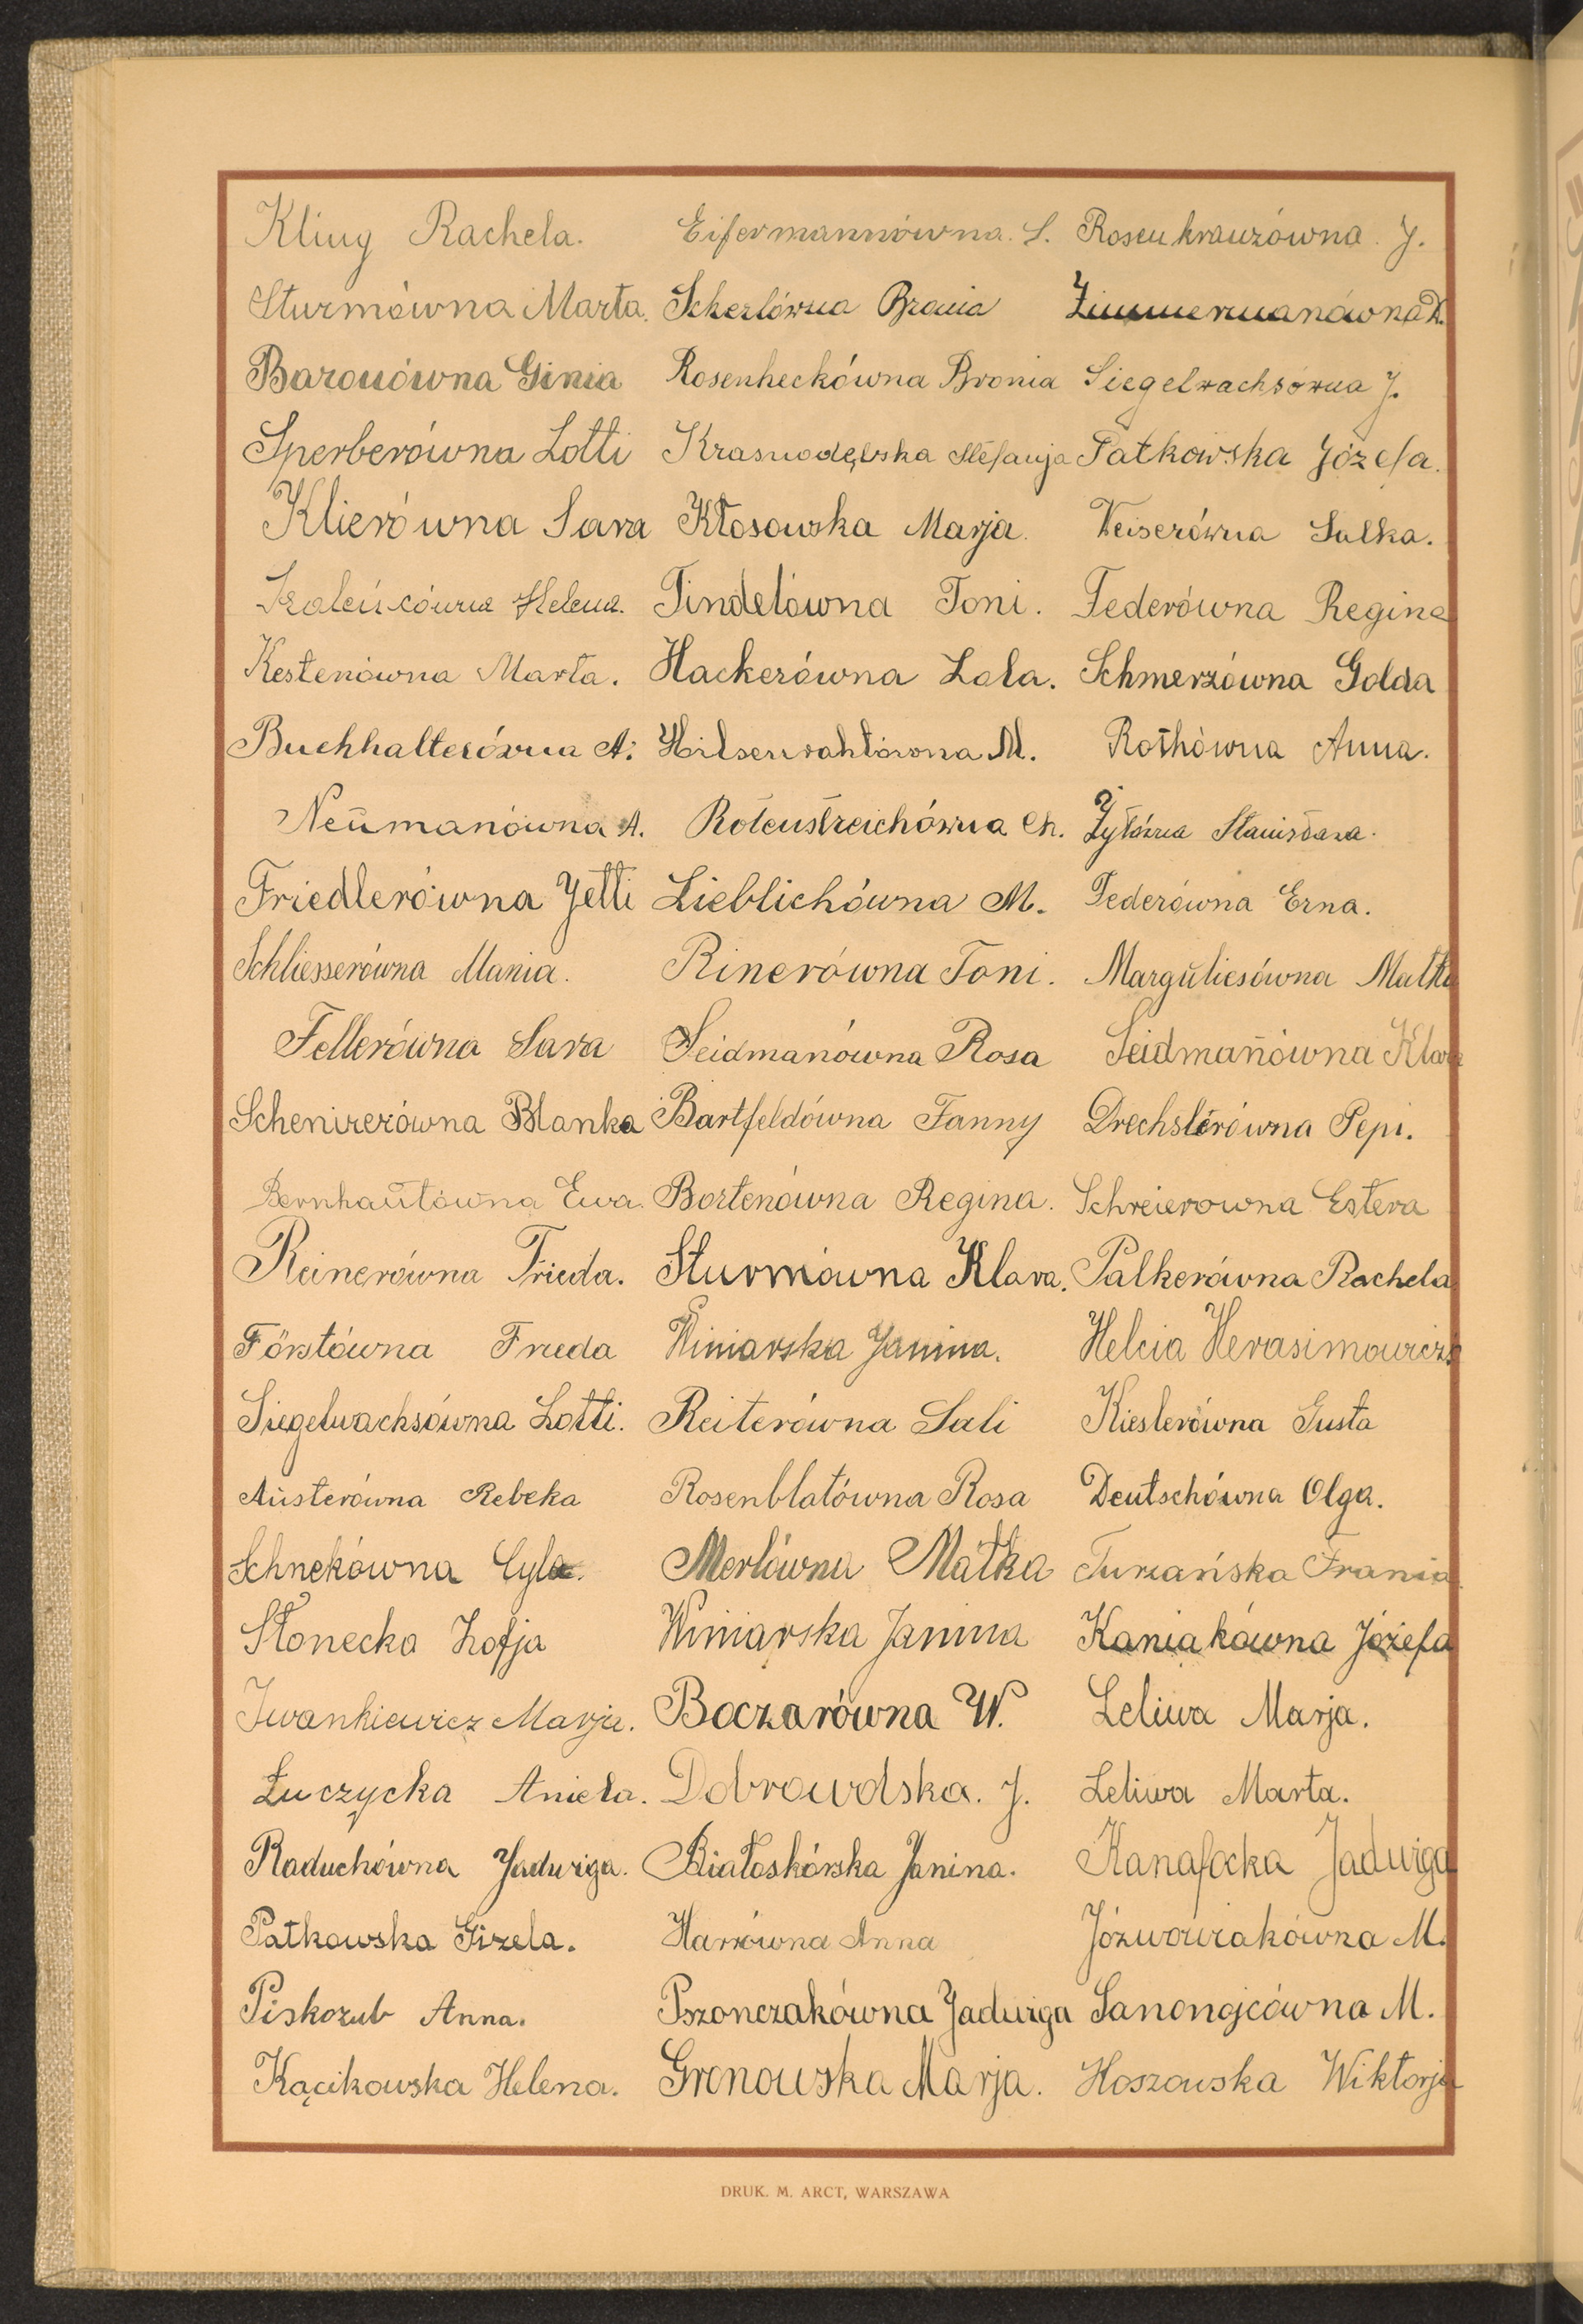 Kling Rachela. Eifermannówna. S. Rosenkranzówna. J.
Sturmówna Marta. Scherlówna Bronia Zimmermanówna R.
Baronówna Ginia Rosenheckówna Bronia Siegelwachsówna J.
Sperberówna Lotti Krasnodębska Stefanja Patkowska Józefa.
Klierówna Sara Kłosowska Marja. Weiserówna Salka.
Helena. Tindelówna Toni. Federówna Regina
Kestenówna Marta. Hackerówna Lola. Schmerzówna Golda
Buchhalterówna A. Hilsenrahtówna M. Rothówna Anna.
Neumanówna A. Rotenstreichówna Ch. Żytówna Stanisława.
Friedlerówna Jetti Lieblichówna M. Federówna Erna.
Schliesserówna Mania. Rinerówna Toni. Margŭliesówna Malka
Fellerówna Sara Seidmanówna Rosa Seidmanówna Klara
Schenirerówna Blanka Bartfeldówna Fanny Drechslerówna Pepi.
Bernhaŭtówna Ewa. Bortenówna Regina. Schreierowna Estera
Reinerówna Frieda. Sturmówna Klara. Palkerówna Rachela
Förstówna Frieda Winiarska Janina. Helcia Herasimowicz
Siegelwachsówna Lotti. Reiterówna Sali Kieslerówna Gusta
Aŭsterówna Rebeka Rosenblatówna Rosa Deutschówna Olga.
Schnekówna Cyla. Merlówna Malka Turzańska Frania.
Słonecka Zofja Winiarska Janina Kaniakówna Józefa
Iwankiewicz Marja. Boczarówna W. Leliwa Marja.
Łuczycka Aniela. Dobrowolska. J. Leliwa Marta.
Raduchówna Jadwiga. Białoskórska Janina. Kanafocka Jadwiga
Patkowska Gizela. Harrówna Anna Józwowiakówna M.
Piskozub Anna. Pszonczakówna Jadwiga Sanonojcówna M.
Kącikowska Helena. Gronowska Marja. Hoszowska Wiktorja
DRUK. M. ARCT, WARSZAWA